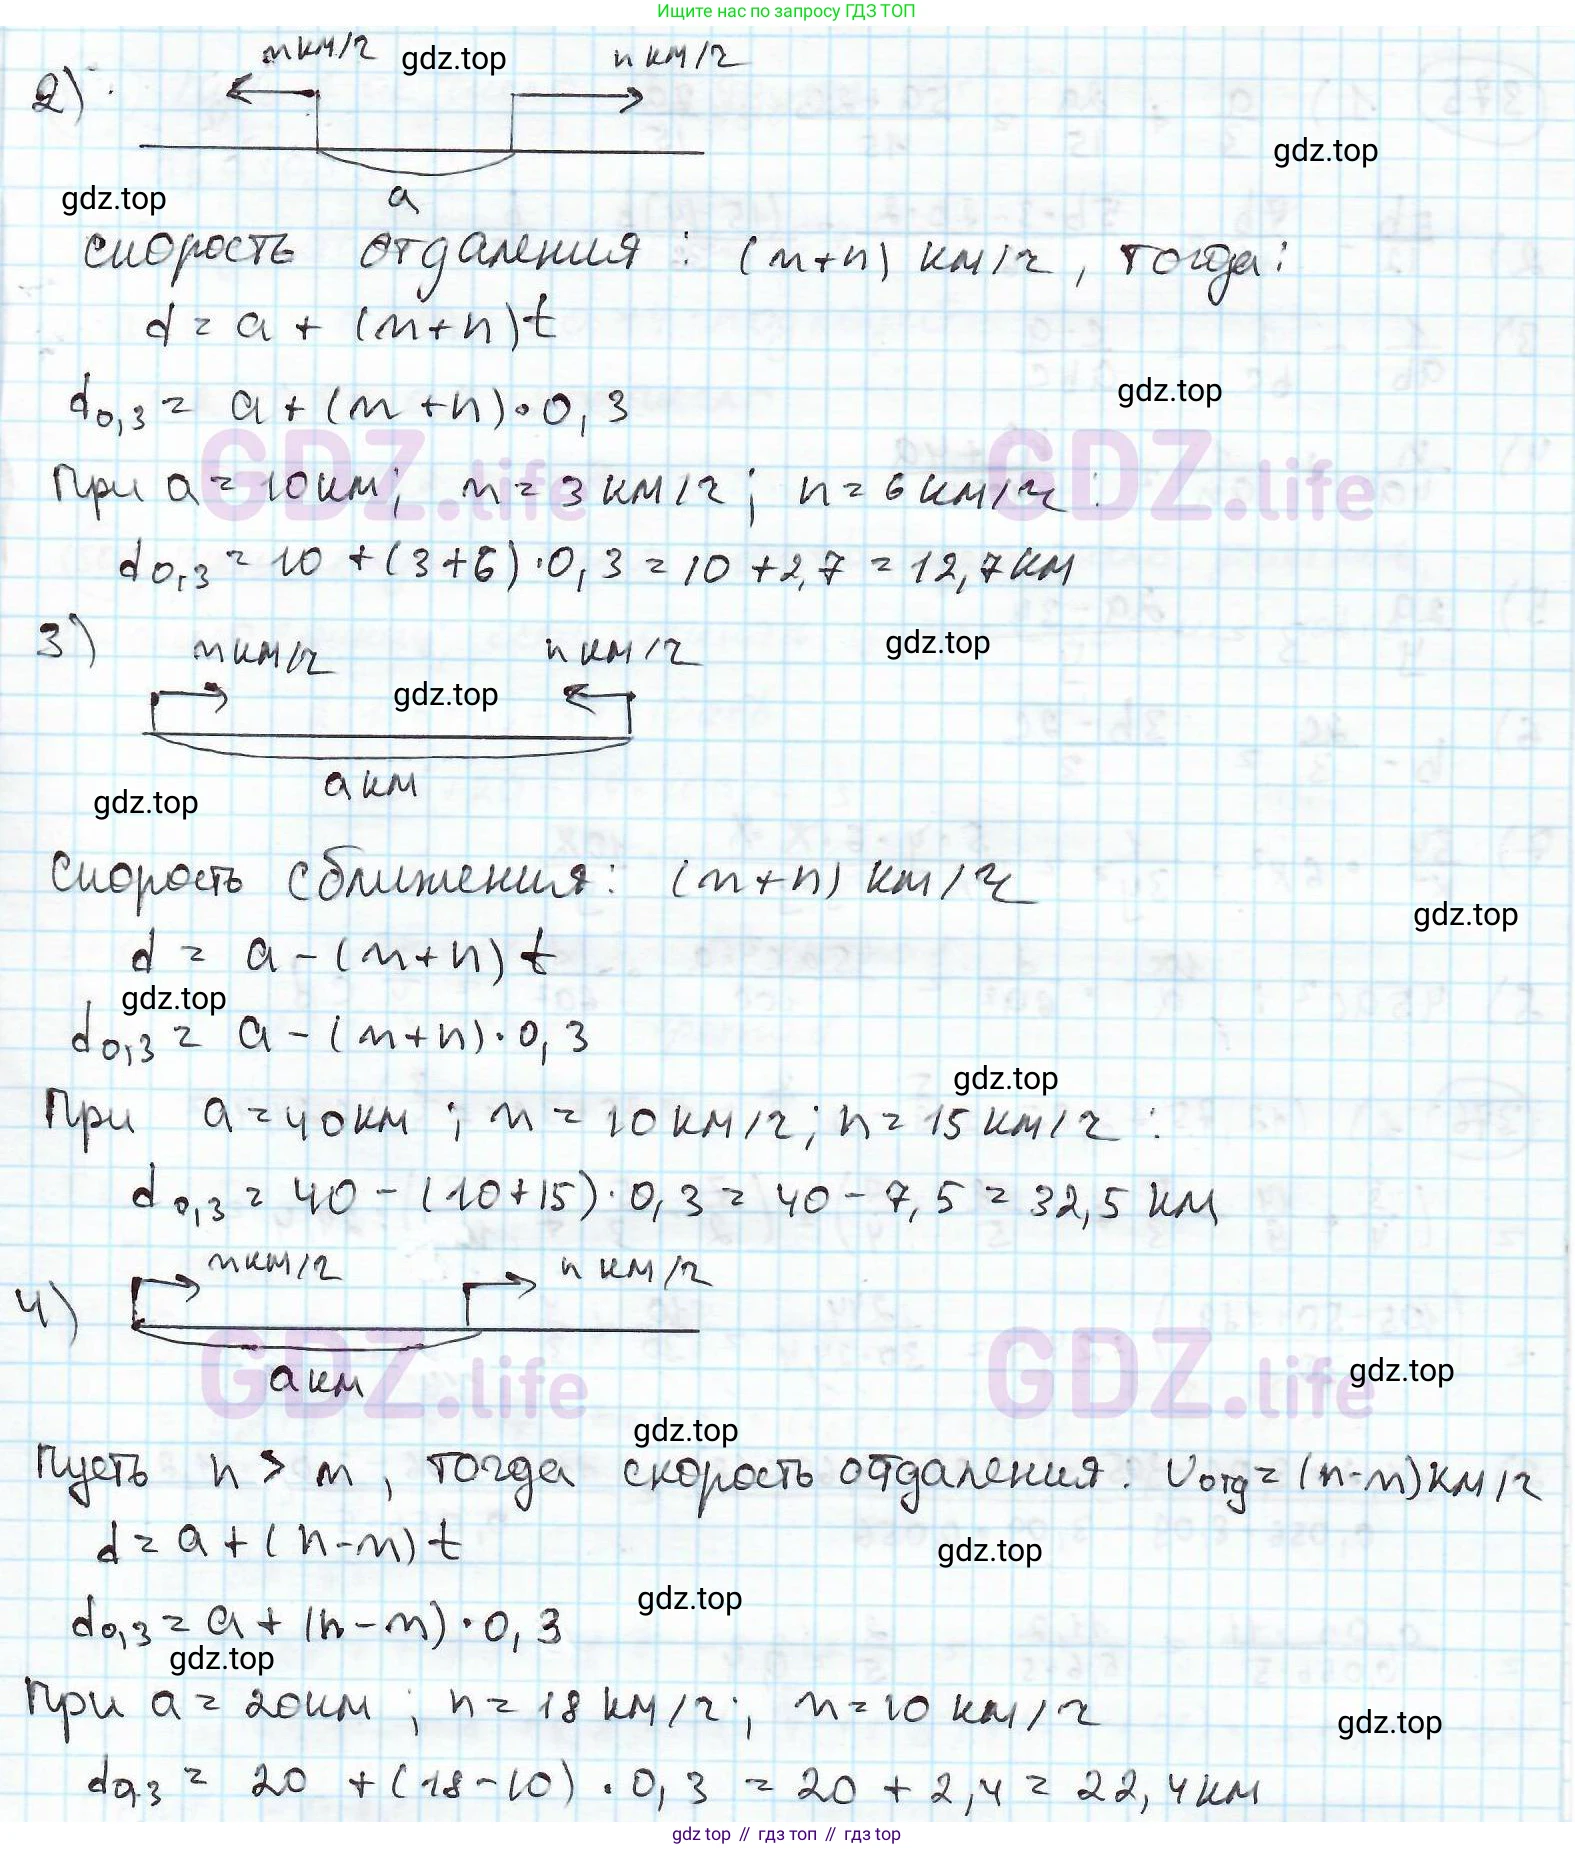 Ищите нас по запросу ГДЗ ТОП
m км/ч gdz.top n км/ч
2)
gdz.top
gdz.top
a
скорость отдаления : (m+n) км/ч , тогда:
d = a + (m+n)t
gdz.top
d0,3 = a + (m+n)·0,3
GDZ.life GDZ.life
При a = 10 км; m = 3 км/ч ; n = 6 км/ч :
d0,3 = 10 + (3+6)·0,3 = 10 + 2,7 = 12,7 км
3) m км/ч n км/ч gdz.top
gdz.top
a км
gdz.top
Скорость сближения: (m+n) км/ч
gdz.top
d = a - (m+n) t
gdz.top
d0,3 = a - (m+n)·0,3
gdz.top
При a = 40 км ; m = 10 км/ч ; n = 15 км/ч :
d0,3 = 40 - (10+15)·0,3 = 40 - 7,5 = 32,5 км
m км/ч n км/ч
4)
GDZ.life GDZ.life
a км gdz.top
gdz.top
Пусть n > m , тогда скорость отдаления: vотд = (n-m) км/ч
d = a + (n-m) t
gdz.top
gdz.top
d0,3 = a + (n-m)·0,3
gdz.top
При a = 20 км ; n = 18 км/ч ; m = 10 км/ч
gdz.top
d0,3 = 20 + (18-10)·0,3 = 20 + 2,4 = 22,4 км
gdz top // гдз топ // гдз top